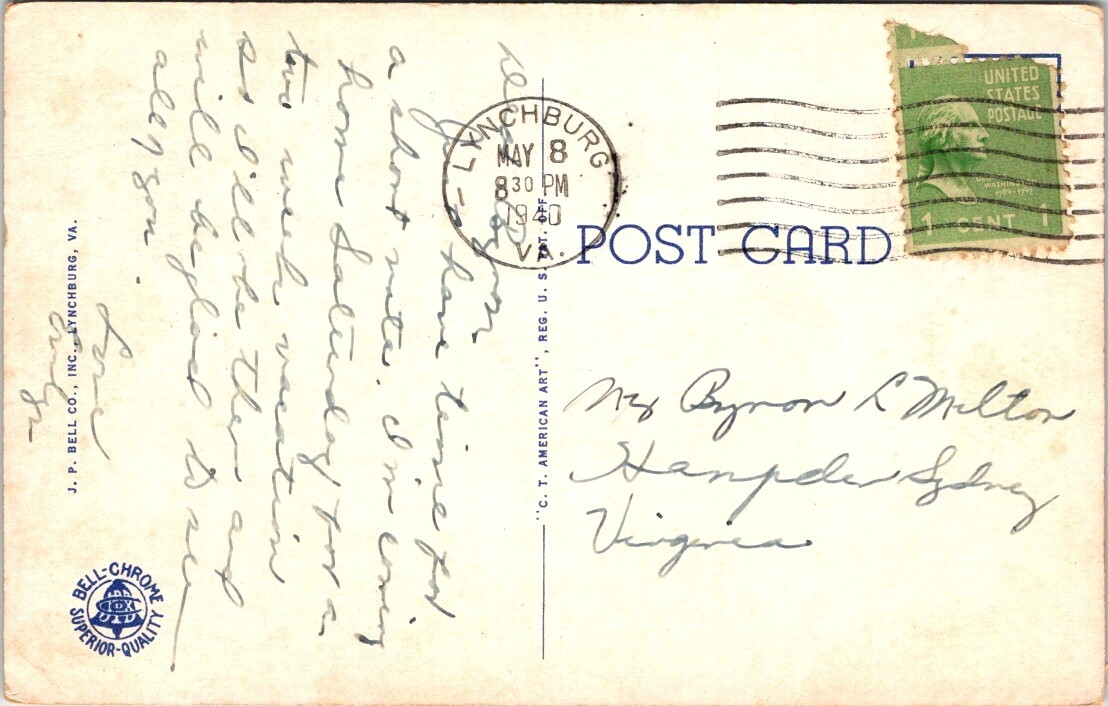 Dear Byron,
Just have time for
a short note. I'm coming
home Saturday for a
two weeks vacation
so I'll be there and
will be glad to see
all you.
Love
LYNCHBURG
MAY 8
8 30 PM
1940
VA.
UNITED
STATES
POSTAGE
WASHINGTON
1 CENT 1
POST CARD
"C. T. AMERICAN ART", REG. U. S. PAT. OFF.
Byron L Milton
Hampden Sydney
Virginia
J. P. BELL CO., INC., LYNCHBURG, VA.
BELL-CHROME
SUPERIOR-QUALITY